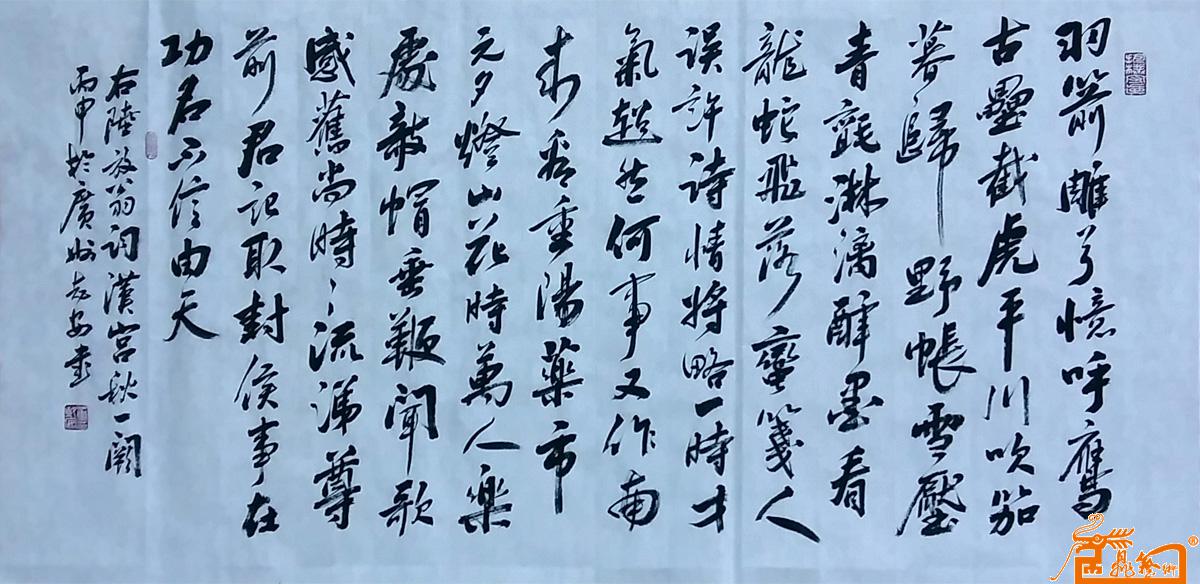 羽箭雕弓憶呼鷹
古壘截虎平川吹笳
暮歸野帳雪壓
青氈淋漓醉墨看
龍蛇飛落蠻箋人
誤許詩情將略一時才
氣超然何事又作南
來看重陽藥市
元夕燈山花時萬人樂
處敧帽垂鞭聞歌
感舊尚時〻流涕尊
前君記取封侯事在
功名不信由天
右陸放翁詞漢宮秋一闋
丙申於廣州